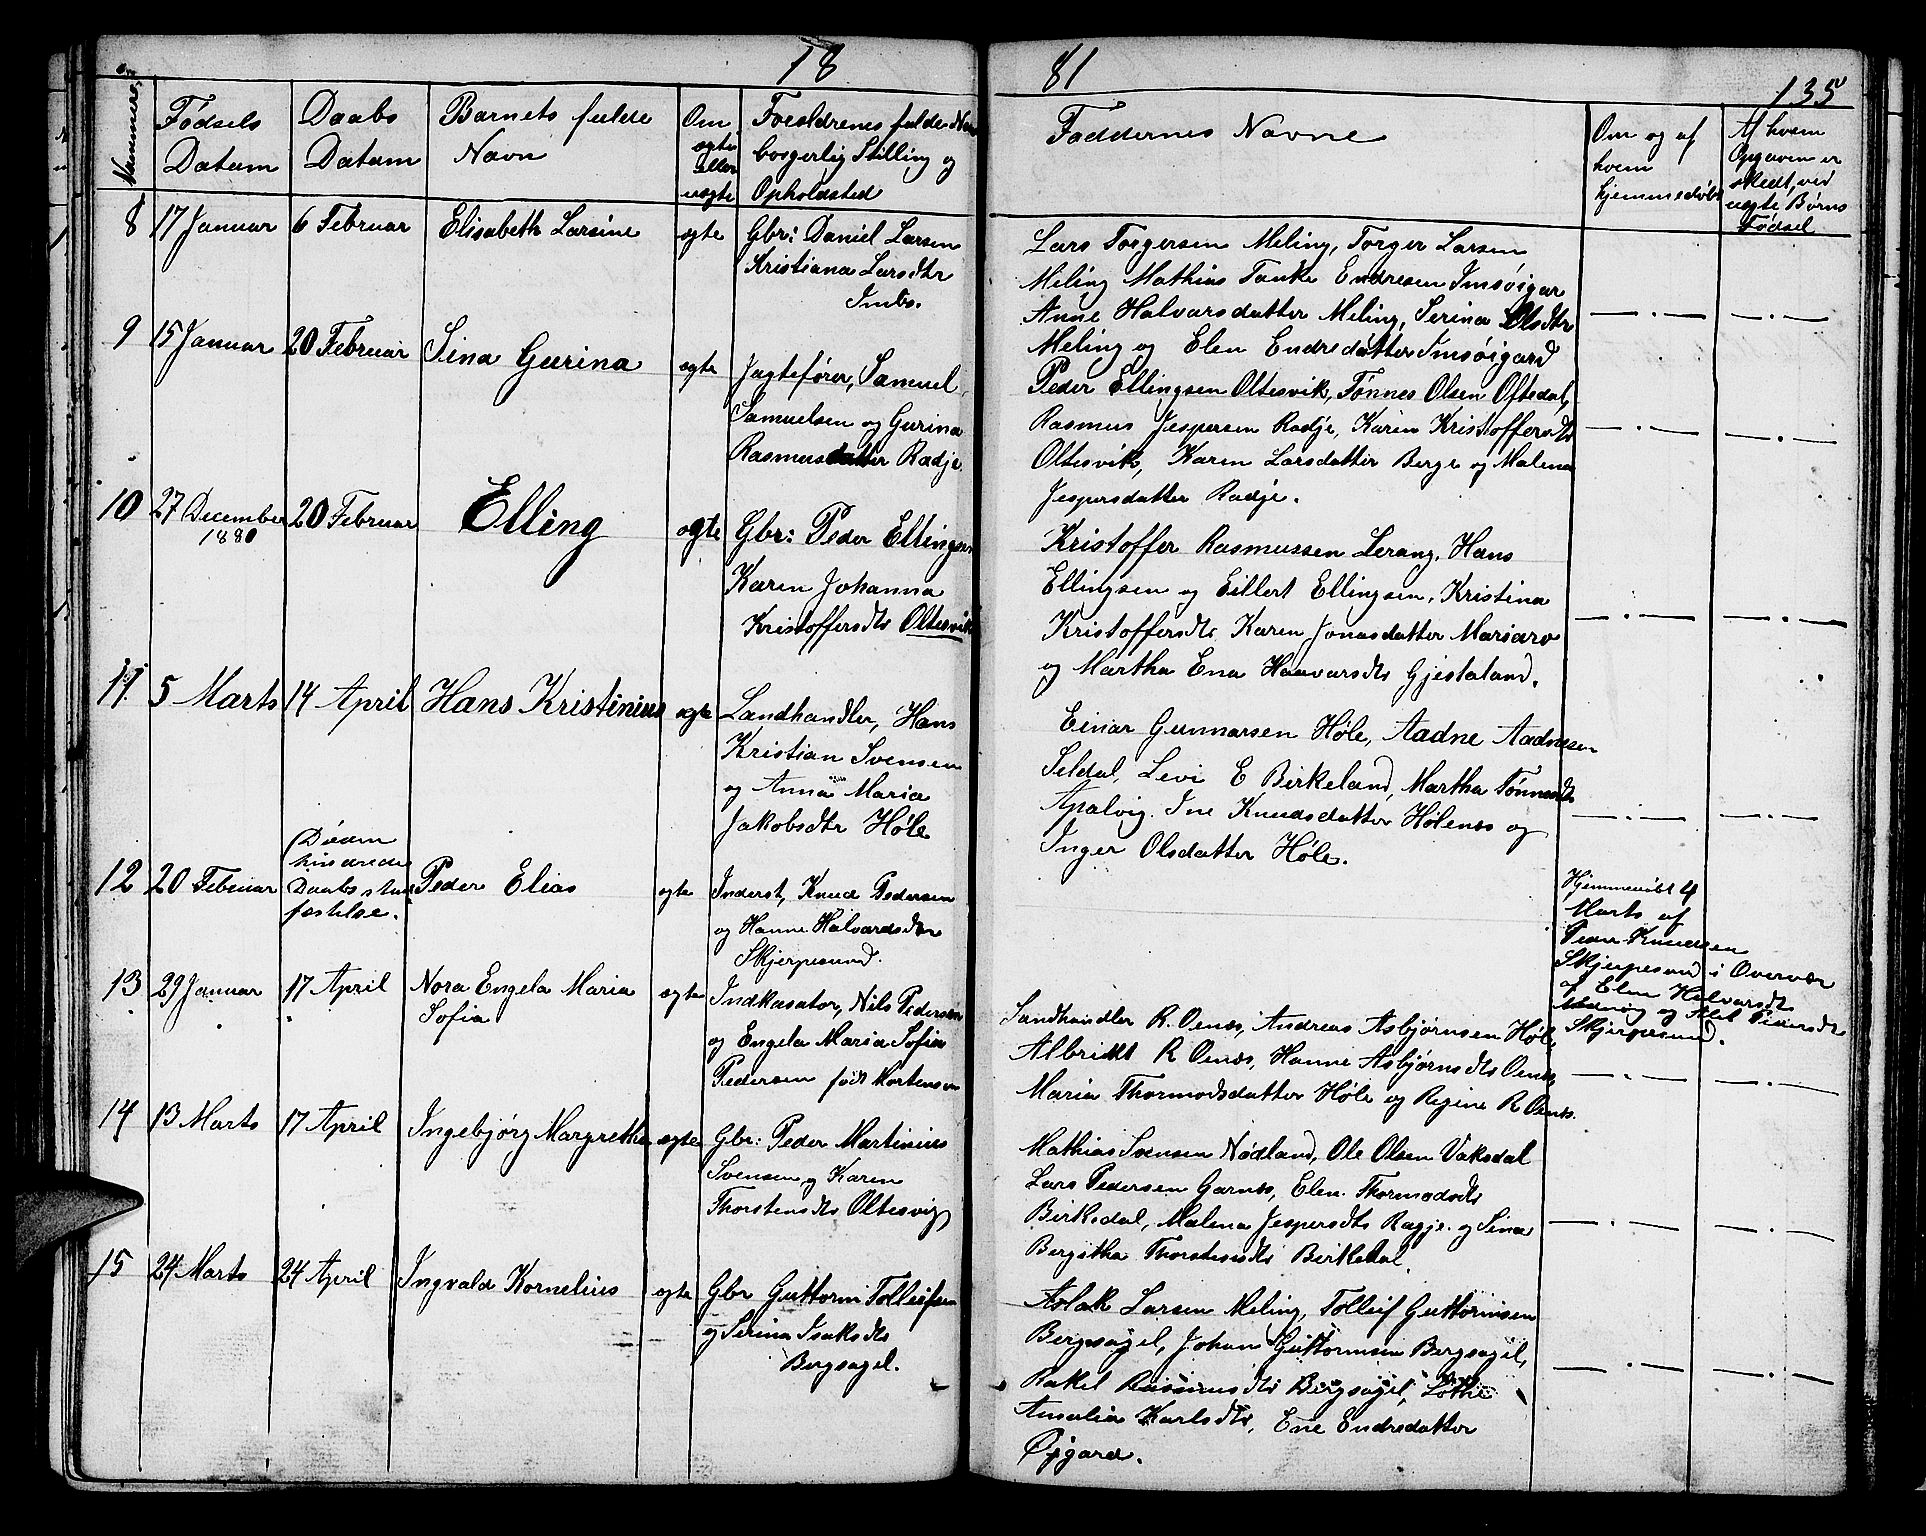 18
81
135
Nummer
Fødsels
Datum
Daabs
Datum
Barnets fulde
Navn
Om
ægte
eller
uægte
Foreldrenes fulde Navn
borgerlig Stilling og
Opholdsted
Faddernes Navne
Om og af
hvem
hjemmedøbt
Af hvem
Opgaven er
skedt, ved
uægte Børns
Fødsel
8 17 Januar 6 Februar Elisabeth Larsine ægte
Gbr: Daniel Larsen
Kristiana Larsdtr
Imbs.
Lars Torgersen Meling, Torger Larsen
Meling Mathias Tanke Endresen Imsøigar
Anne Halvarsdatter Meling, Serina Olsdtr
Meling og Elen Endredatter Imsøigard
9 15 Januar 20 Februar Sina Gurina ægte
Jagtefører, Samuel
Samuelsen og Gurina
Rasmusdatter Radje
Peder Ellingsen Oltesvik, Tønnes Olsen Oftedal,
Rasmus Jespersen Radje, Karen Kristoffersdtr
Oltesvik, Karen Larsdatter Berge og Malena
Jespersdatter Radje.
10 27 December 20 Februar Elling ægte
1880
Gbr: Peder Ellingsen
Karen Johanna
Kristoffersdtr Oltesvik
Kristoffer Rasmussen Lerang, Hans
Ellingsen og Eillert Ellingsen, Kristina
Kristoffersdtr Karen Jonasdatter Mariero
og Martha Ena Haavarsdtr Gjestaland.
11 5 Marts 14 April Hans Kristinius ægte
Landhandler, Hans
Kristian Svensen
og Anna Maria
Jakobsdtr Høle
Einar Gunnarsen Høle, Aadne Aadnesen
Seldal, Levi E Birkeland, Martha Tønnesdtr
Apalvig. Ine Knudsdatter Hølenes og
Inger Olsdatter Høle.
12 20 Februar
Døden
hindrede
Daabs stad
fæstelse.
Peder Elias ægte
Inderst, Knud Pedersen
og Hanne Halvardsdtr
Skjerpesund.
Hjemmedøbt 4
Marts af
Peder Knudsen
Skjerpesund i Overvær
af Elen Halvarsdtr
og Peders dtr
Skjerpesund.
13 29 Januar 17 April Nora Engela Maria ægte
Sofia
Indkasator, Nils Pedersen
og Engela Maria Sofia
Pedersen født Mortensen
Landhandler R. Oenæs, Andreas Asbjørnsen Høle
Albridt R Oenæs, Hanne Asbjørnsdtr Oenæs
Maria Thormodsdatter Høle og Regine R Oenæs.
14 13 Marts 17 April Ingebjørg Margrethe ægte
Gbr: Peder Martinius
Svensen og Karen
Thorstensdtr Oltesvig
Mathias Svensen Nødland, Ole Olsen Vaksdal
Lars Pedersen Garnes, Elen Thormodsdtr
Birkedal, Malena Jespersdtr Ragje og Sina
Bergitha Thorstensdtr Birkedal.
15 24 Marts 24 April Ingvald Kornelius ægte
Gbr Guttorm Tolleifsen
og Serina Isaksdtr
Bergsagel.
Aslak Larsen Meling, Tolleif Guttormsen
Bergsagel, Johan Guttormsen Bergsagel,
Rakel Rasmusdtr Bergsagel, Lothe
Amalia Karlsdtr, Ene Endredatter
Øigard.